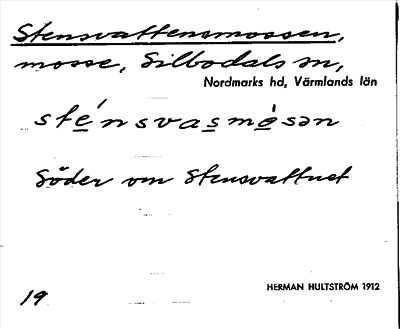 Stensvattensmossen,
mosse, Silbodals sn,
Nordmarks hd, Värmlands län
sténsvasmósən
Söder om Stensvattnet
HERMAN HULTSTRÖM 1912
19